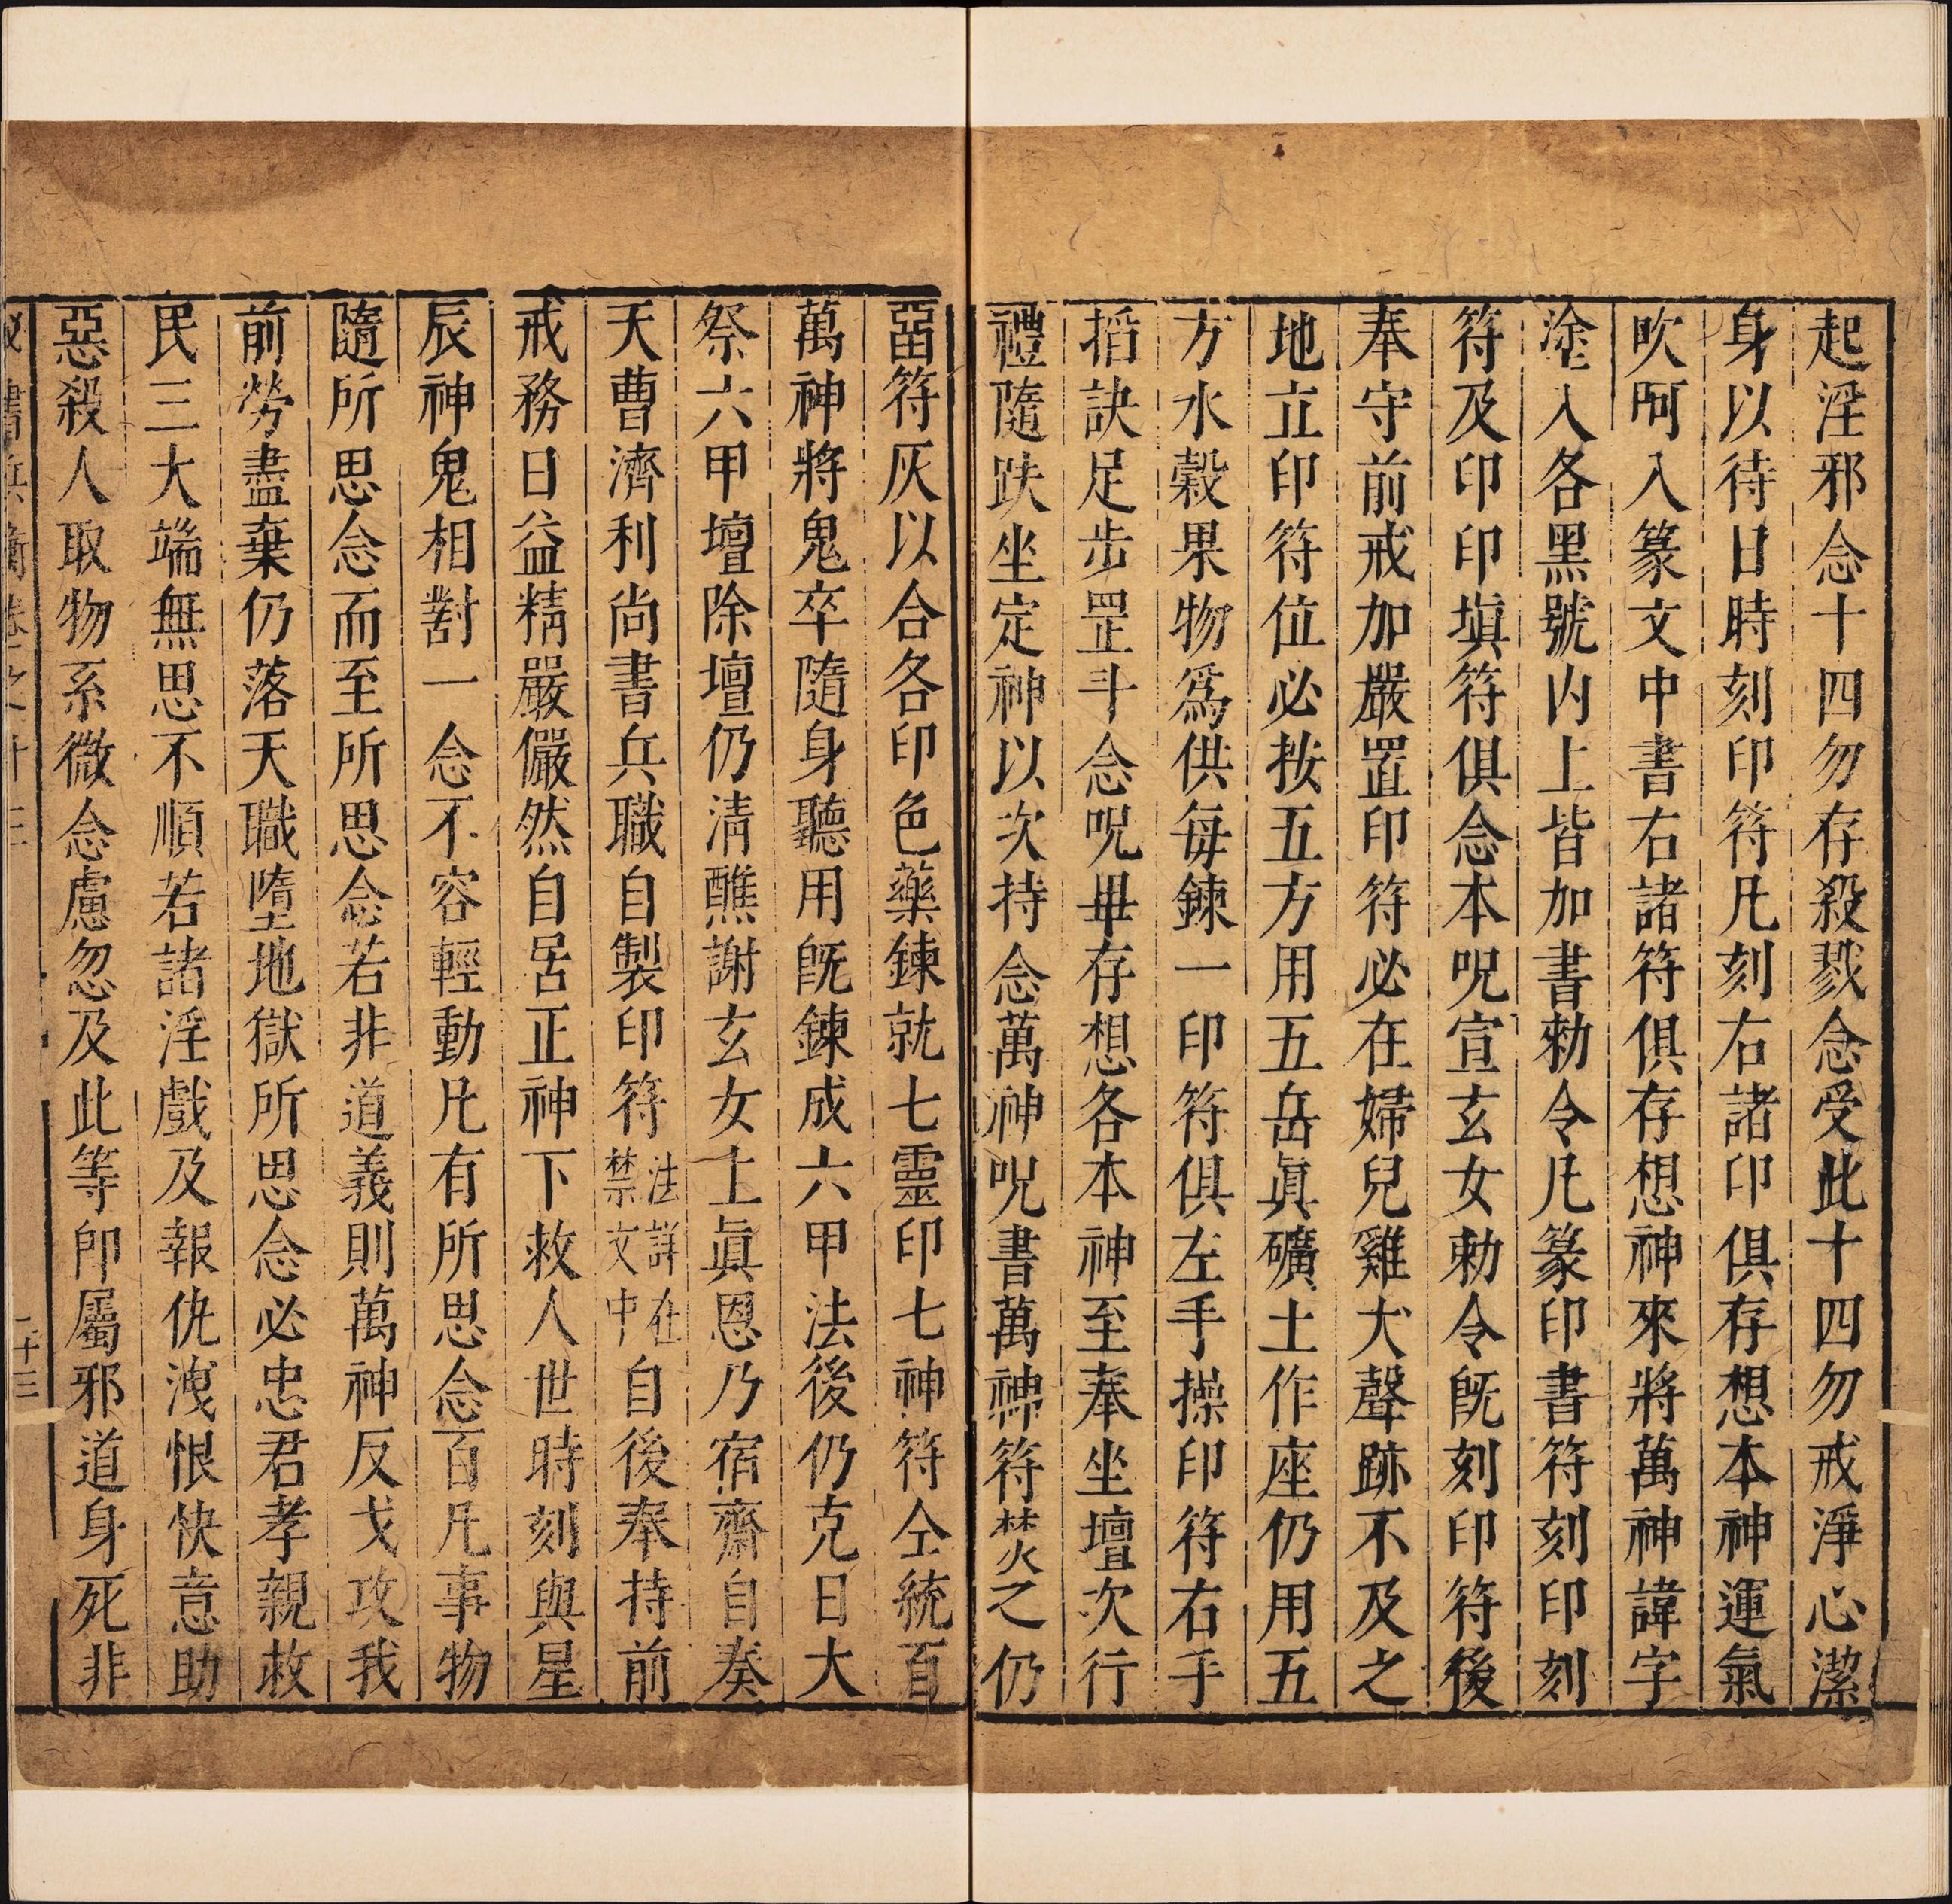 起淫邪念十四勿存殺戮念受此十四勿戒淨心潔
身以待日時刻印符凡刻右諸印俱存想本神運氣
吹呵入篆文中書右諸符俱存想神來將萬神諱字
塗入各黑號內上皆加書勑令凡篆印書符刻印刻
符及印印塡符俱念本呪宣玄女勅令旣刻印符後
奉守前戒加嚴置印符必在婦兒雞犬聲跡不及之
地立印符位必按五方用五岳眞礦土作座仍用五
方水穀果物爲供每鍊一印符俱左手操印符右手
搯訣足步罡斗念呪毋存想各本神至奉坐壇次行
禮隨趺坐定神以次持念萬神呪書萬神符焚之仍
畱符灰以合各印色藥鍊就七靈印七神符仝統百
萬神將鬼卒隨身聽用旣鍊成六甲法後仍克日大
祭六甲壇除壇仍淸醮謝玄女上眞恩乃宿齋自奏
天曹濟利尚書兵職自製印符法詳在禁文中自後奉持前
戒務日益精嚴儼然自居正神下救人世時刻與星
辰神鬼相對一念不容輕動凡有所思念百凡事物
隨所思念而至所思念若非道義則萬神反戈攻我
前勞盡棄仍落天職墮地獄所思念必忠君孝親救
民三大端無思不順若諸淫戲及報仇洩恨快意助
惡殺人取物系微念慮忽及此等卽屬邪道身死非
書兵衡卷之十三
二十三